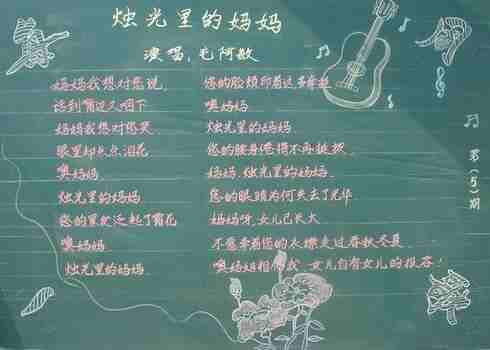 烛光里的妈妈
演唱:毛阿敏
妈妈我想对您说,
话到嘴边又咽下
妈妈我想对您笑
眼里却点点泪花
噢妈妈
烛光里的妈妈
您的黑发泛起了霜花
噢妈妈
烛光里的妈妈
您的脸颊印着这多牵挂
噢妈妈
烛光里的妈妈
您的腰身倦得不再挺拔
妈妈,烛光里的妈妈
您的眼睛为何失去了光华
妈妈呀,女儿已长大
不愿牵着您的衣襟走过春秋冬夏
噢妈妈相信我,女儿自有女儿的报答!
第(5)期